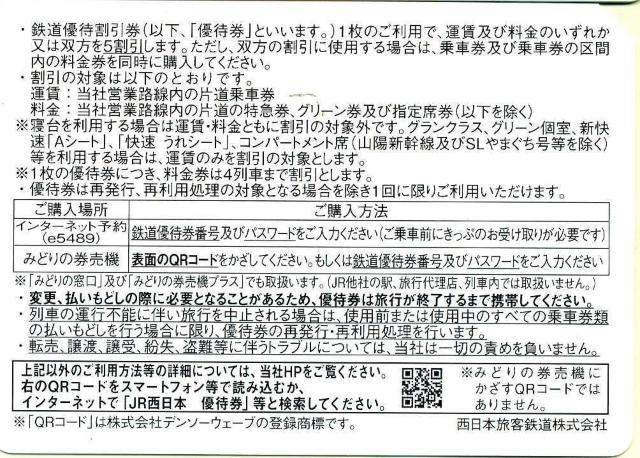 ・鉄道優待割引券(以下、「優待券」といいます。)1枚のご利用で、運賃及び料金のいずれか
又は双方を5割引します。ただし、双方の割引に使用する場合は、乗車券及び乗車券の区間
内の料金券を同時に購入してください。
・割引の対象は以下のとおりです。
運賃：当社営業路線内の片道乗車券
料金：当社営業路線内の片道の特急券、グリーン券及び指定席券(以下を除く)
※寝台を利用する場合は運賃・料金ともに割引の対象外です。グランクラス、グリーン個室、新快
速「Aシート」、「快速 うれシート」、コンパートメント席(山陽新幹線及びSLやまぐち号等を除く)
等を利用する場合は、運賃のみを割引の対象とします。
※1枚の優待券につき、料金券は4列車まで割引とします。
・優待券は再発行、再利用処理の対象となる場合を除き1回に限りご利用いただけます。
ご購入場所 ご購入方法
インターネット予約 鉄道優待券番号及びパスワードをご入力ください(ご乗車前にきっぷのお受け取りが必要です)
(e5489)
みどりの券売機 表面のQRコードをかざしてください。もしくは鉄道優待券番号及びパスワードをご入力ください
※「みどりの窓口」及び「みどりの券売機プラス」でも取扱います。(JR他社の駅、旅行代理店、列車内では取扱いません。)
・変更、払いもどしの際に必要となることがあるため、優待券は旅行が終了するまで携帯してください。
・列車の運行不能に伴い旅行を中止される場合は、使用前または使用中のすべての乗車券類
の払いもどしを行う場合に限り、優待券の再発行・再利用処理を行います。
・転売、譲渡、譲受、紛失、盗難等に伴うトラブルについては、当社は一切の責めを負いません。
上記以外のご利用方法等の詳細については、当社HPをご覧ください。
右のQRコードをスマートフォン等で読み込むか、
インターネットで「JR西日本 優待券」等と検索してください。
※みどりの券売機に
かざすQRコードでは
ありません。
※「QRコード」は株式会社デンソーウェーブの登録商標です。 西日本旅客鉄道株式会社